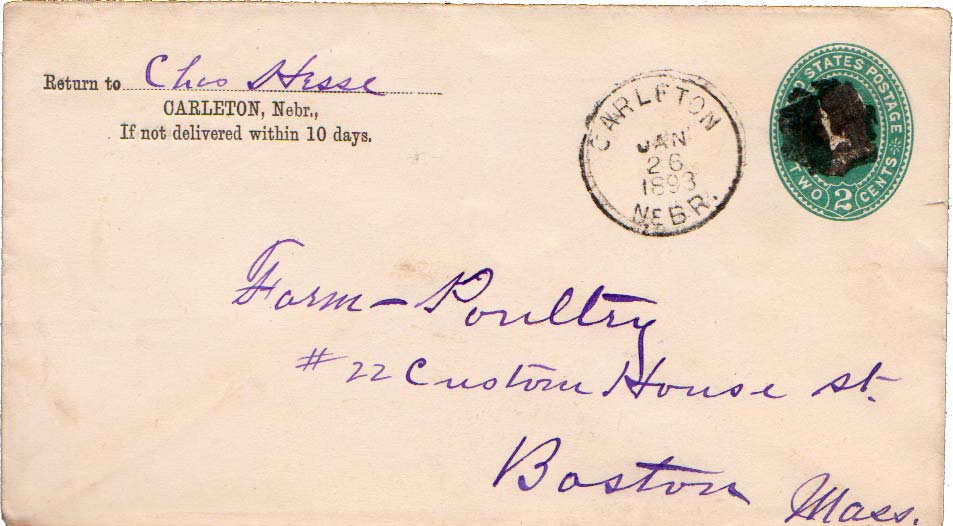 Return to Chas Hesse
CARLETON, Nebr.,
If not delivered within 10 days.
CARLETON
JAN
26
1893
NEBR.
STATES POSTAGE
TWO 2 CENTS
Farm-Poultry
#22 Custom House st.
Boston
Mass.